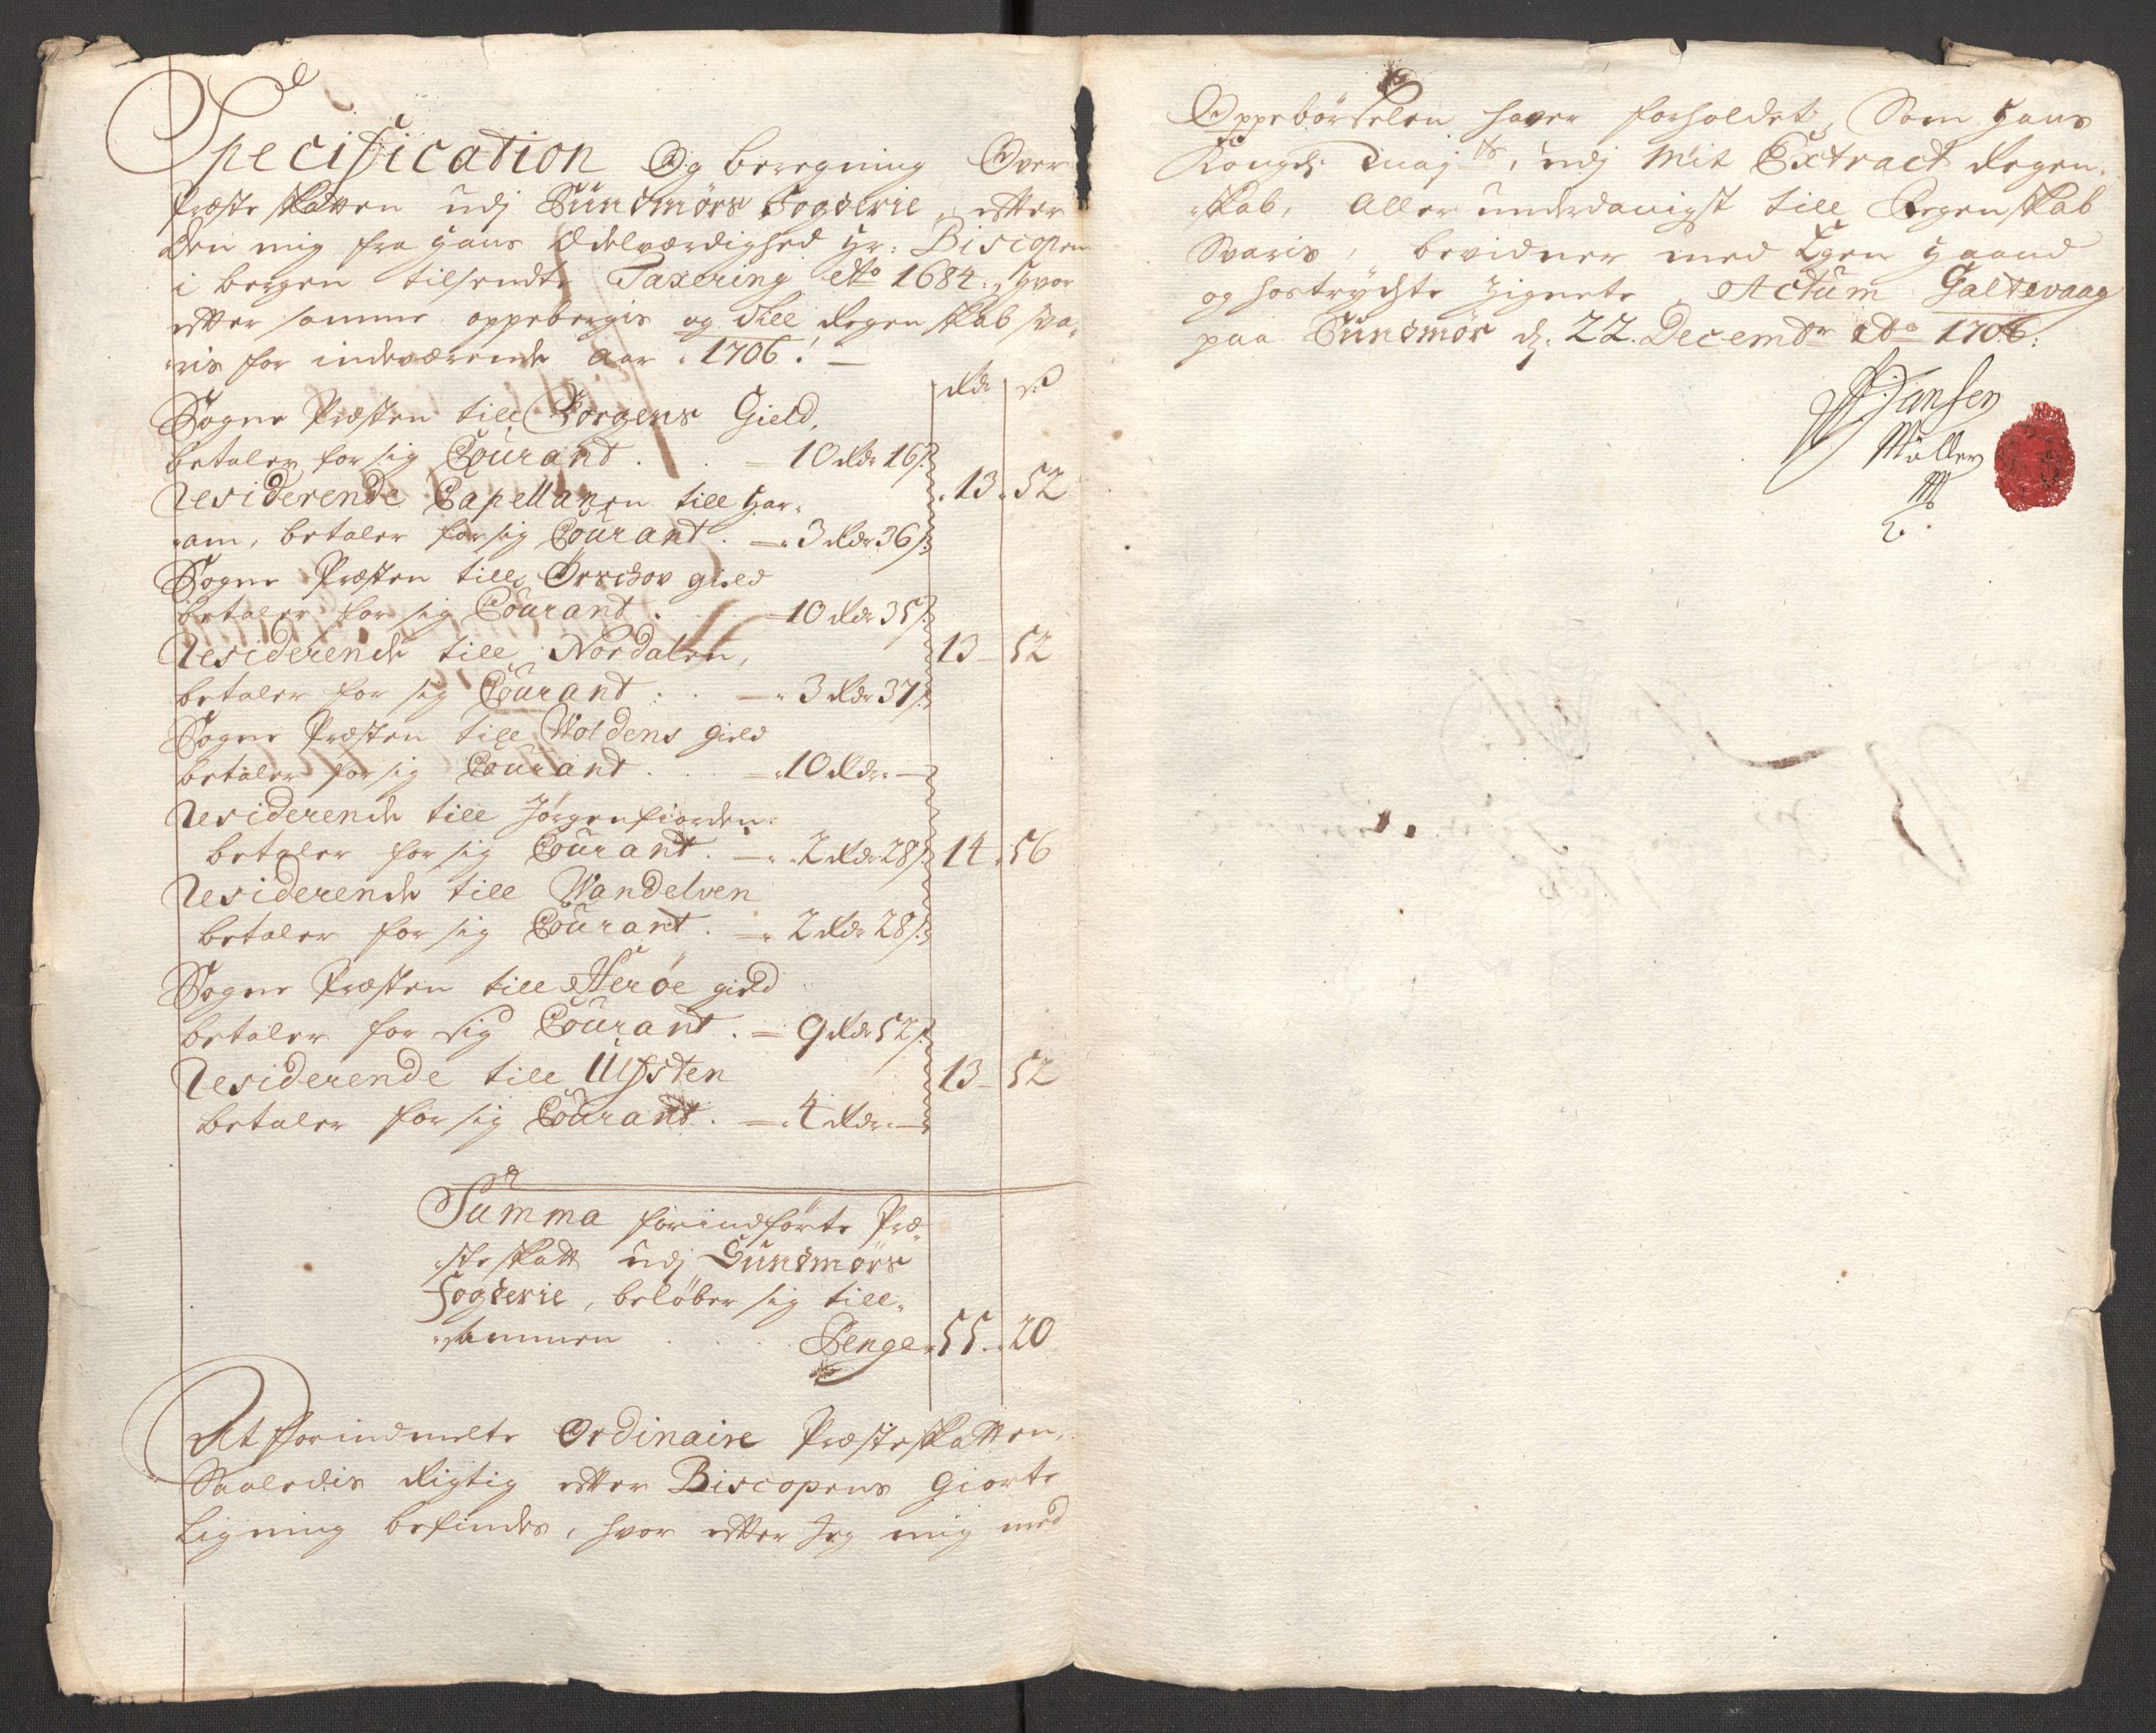 Specification Og beregning Over
Præste skatten udj Sundmørs Fogderie, effter
den mig fra hans Ædelværdighed Hr: Biscopen
i bergen tilsendte Taxering Ao 1684., hvor
effter samme oppebergis og till Regenskab sva„
„ris for indeværende Aar 1706: —
Rdr ß
Sogne Præsten till Borgens Gield,
betaler for sig Courant . . — 10 Rdr 16 ß
Residerende Capellanen till Har„ 13. 52
„am, betaler for sig Courant . — 3 Rdr 36 ß
Sogne Præsten till Ørschov gield
betaler for sig Courant . . 10 Rdr 35 ß
Residerende till Nordalen, 13 — 52
betaler for sig Courant . . — 3 Rdr 37 ß
Sogne Præsten till Woldens gield
betaler for sig Courant . . — 10 Rdr —
Residerende till Jørgenfiorden.
betaler for sig Courant . — 2 Rdr 28 ß 14. 56
Residerende till Wandelven
betaler for sig Courant . — 2 Rdr 28 ß
Sogne Præsten till Herøe gield
betaler for sig Courant . — 9 Rdr 52 ß
Residerende till Ulfsten 13 — 52
betaler for sig Courant . — 4 Rdr —
Summa forindførte Præ„
„ste skatt udj Sundmørs
Fogderie, beløber sig till„
„sammen . . . Penge 55. 20
At forindmelte Ordinaire Præsteskatten,
Saaledis Rigtig effter Biscopens Giorte
Ligning befindes, hvor effter Jeg mig med
Oppebørselen haver forholdet, Som Hans
Kongl: Mayts, udj Mit Extract Regen„
„skab, Aller underdanigst till Regenskab
Svaris, bevidner med Egen Haand
og hostrychte Zignete, Actum Galtevaag
paa Sundmør d. 22. Decembr Ao 1706:
Jansen
Møller